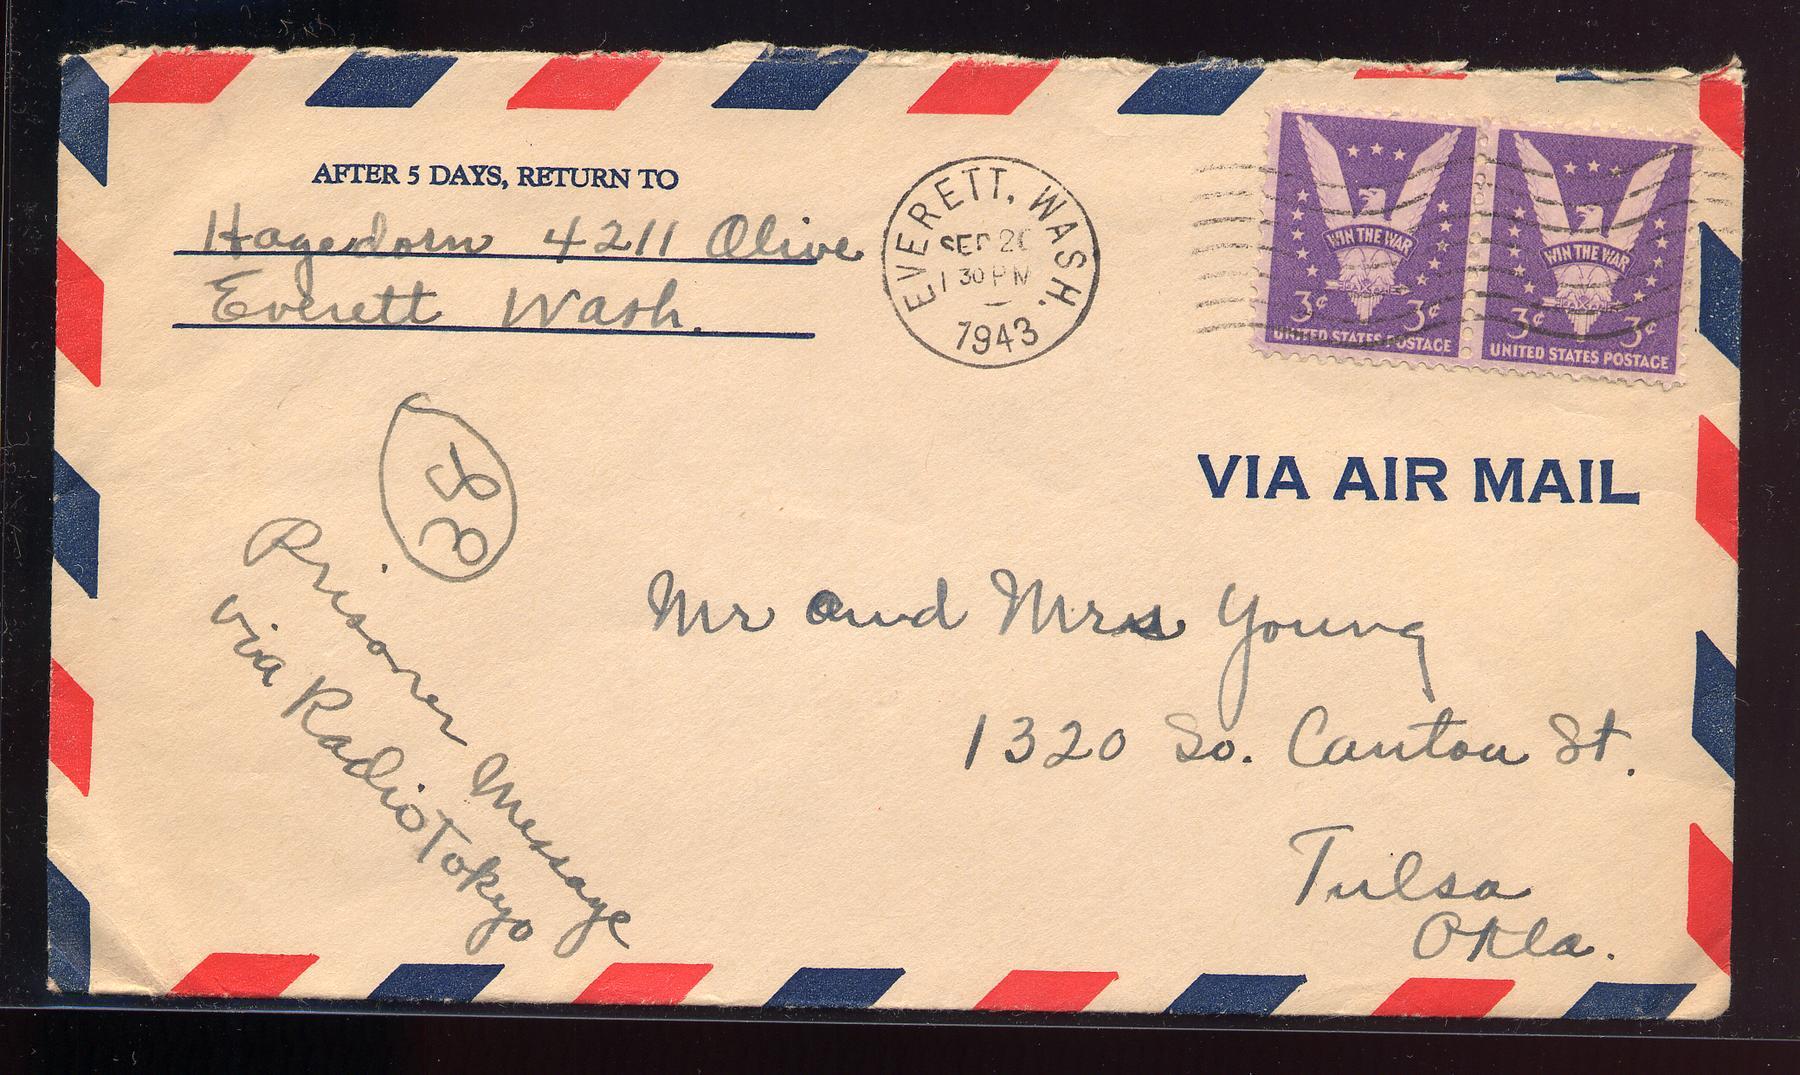 AFTER 5 DAYS, RETURN TO
Hagedorn 4211 Olive
Everett Wash.
EVERETT, WASH.
SEP 20
1 30 PM
1943
WIN THE WAR
3¢ 3¢
UNITED STATES POSTAGE
WIN THE WAR
3¢ 3¢
UNITED STATES POSTAGE
VIA AIR MAIL
Prisoner Message
via Radio Tokyo
Mr and Mrs Young
1320 So. Canton St.
Tulsa
Okla.